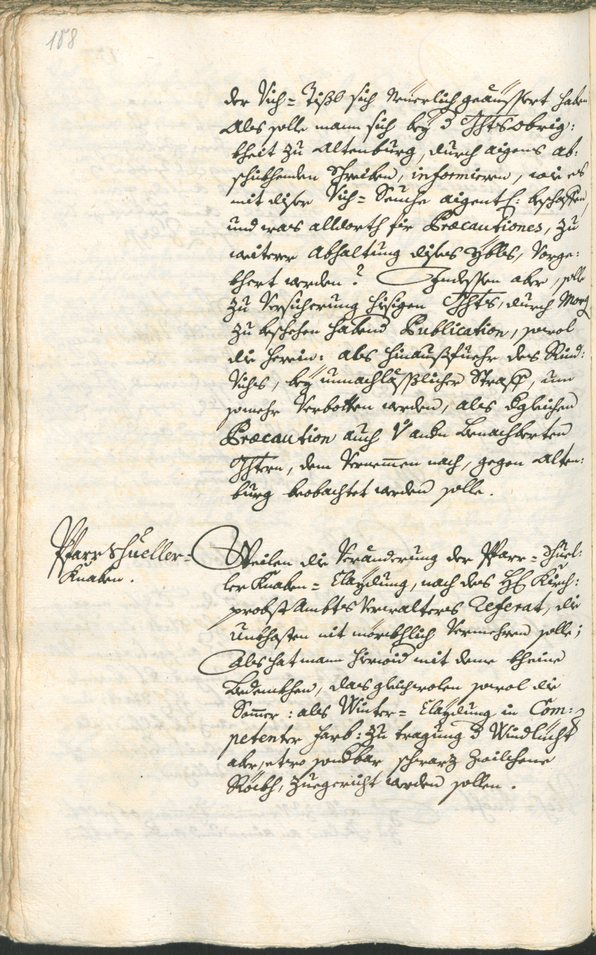 158
der Vich= sich neuerlich geäussert haben
Als solle mann sich bey d Ghtsobrig:
kheit zu Altenburg, durch aigens ab:
schikhenden Schreiben, informieren, wie es
mit diser Vich= Seuche aigentl: beschaffen
und was alldorth für Præcautiones, zu
weiterer Abhaltung dises Ybls, vorge:
khert werden? Indessen aber, solle
zu Versicherung hiesigen Ghts, durch
zu beschehen habend Publication, sowol
die herein: als hinausfuehr des Rind:
Vichs, bey unnachlässlicher Straff, umb
somehr verbotten werden, als dgleichen
Præcaution auch v andn benachberten
Ghtern, dem Vernemmen nach, gegen Alten:
burg beobachtet werden solle.
Pfarrschueller=
Knaben.
Weilen die Veränderung der Pfarr=Schuel:
ler Knaben= Claydung, nach des H Kirch:
probst Ambts Verwalters Referat, die
Unkhosten nit mörkhlich vermehren solle;
Als hat mann hierwid mit deme kheine
Bedenkhen, das gleichwolen sowol die
Sommer: als Winter= Claydung in Com:
petenter farb: zu tragung d Windliecht
aber, etwo sondbar schwarz zwilchene
Rökh, zuegericht werden sollen.